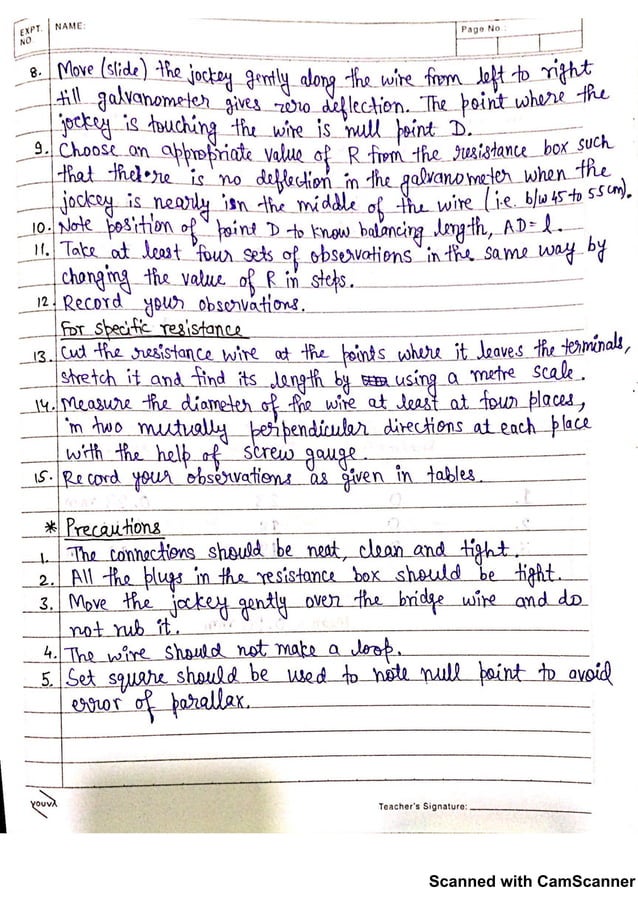 EXPT. NO. NAME: Page No.:
8. Move (slide) the jockey gently along the wire from left to right
till galvanometer gives zero deflection. The point where the
jockey is touching the wire is null point D.
9. Choose an appropriate value of R from the resistance box such
that there is no deflection in the galvanometer when the
jockey is nearly in the middle of the wire (i.e. b/w 45 to 55cm).
10. Note position of point D to know balancing length, AD = l.
11. Take at least four sets of observations in the same way by
changing the value of R in steps.
12. Record your observations.
For specific resistance
13. Cut the resistance wire at the points where it leaves the terminals,
stretch it and find its length by using a metre scale.
14. Measure the diameter of the wire at least at four places,
in two mutually perpendicular directions at each place
with the help of screw gauge.
15. Record your observations as given in tables.
* Precautions
1. The connections should be neat, clean and tight.
2. All the plugs in the resistance box should be tight.
3. Move the jockey gently over the bridge wire and do
not rub it.
4. The wire should not make a loop.
5. Set square should be used to note null point to avoid
error of parallax.
YOUVA Teacher's Signature:
Scanned with CamScanner